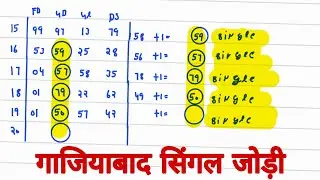 FD GD GL DS
15 99 97 13 79 58 +1= 59 single
16 53 59 25 28 56 +1= 57 single
17 04 57 58 35 78 +1= 79 single
18 01 79 22 42 49 +1= 50 single
19 01 50 57 42 +1= single
20
गाजियाबाद सिंगल जोड़ी